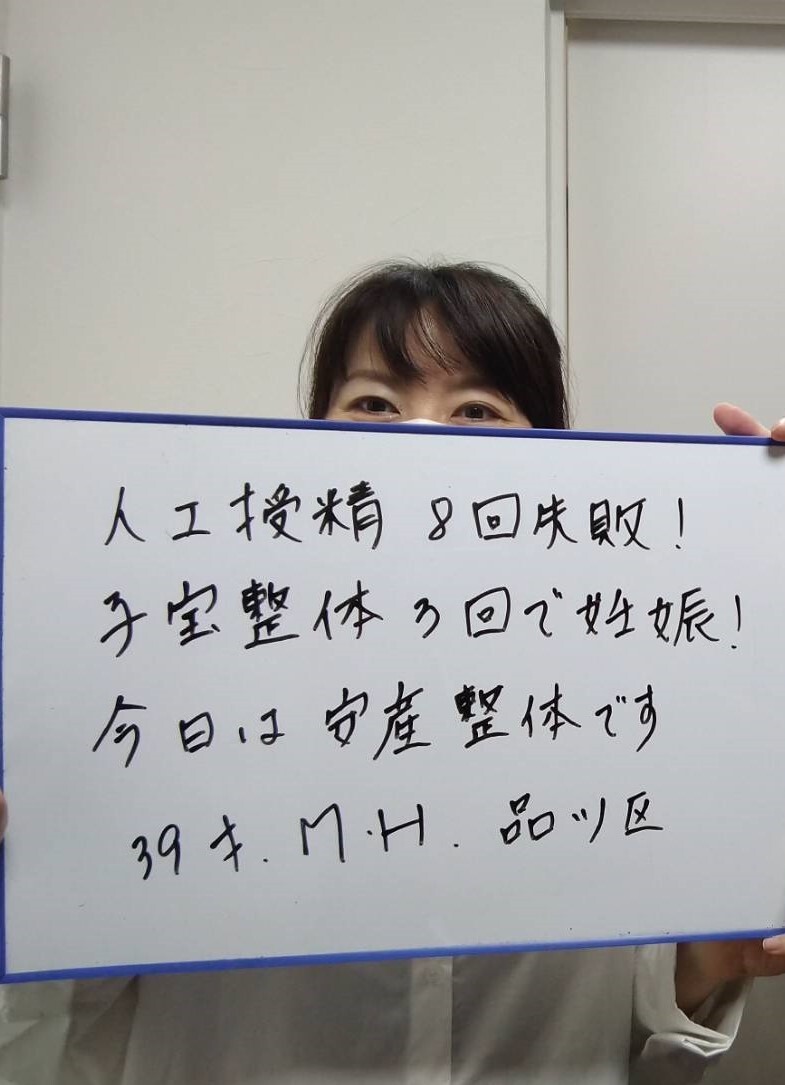 人工授精 8回失敗!
子宝整体 3回で妊娠!
今日は 安産整体です
39才. M.H. 品川区